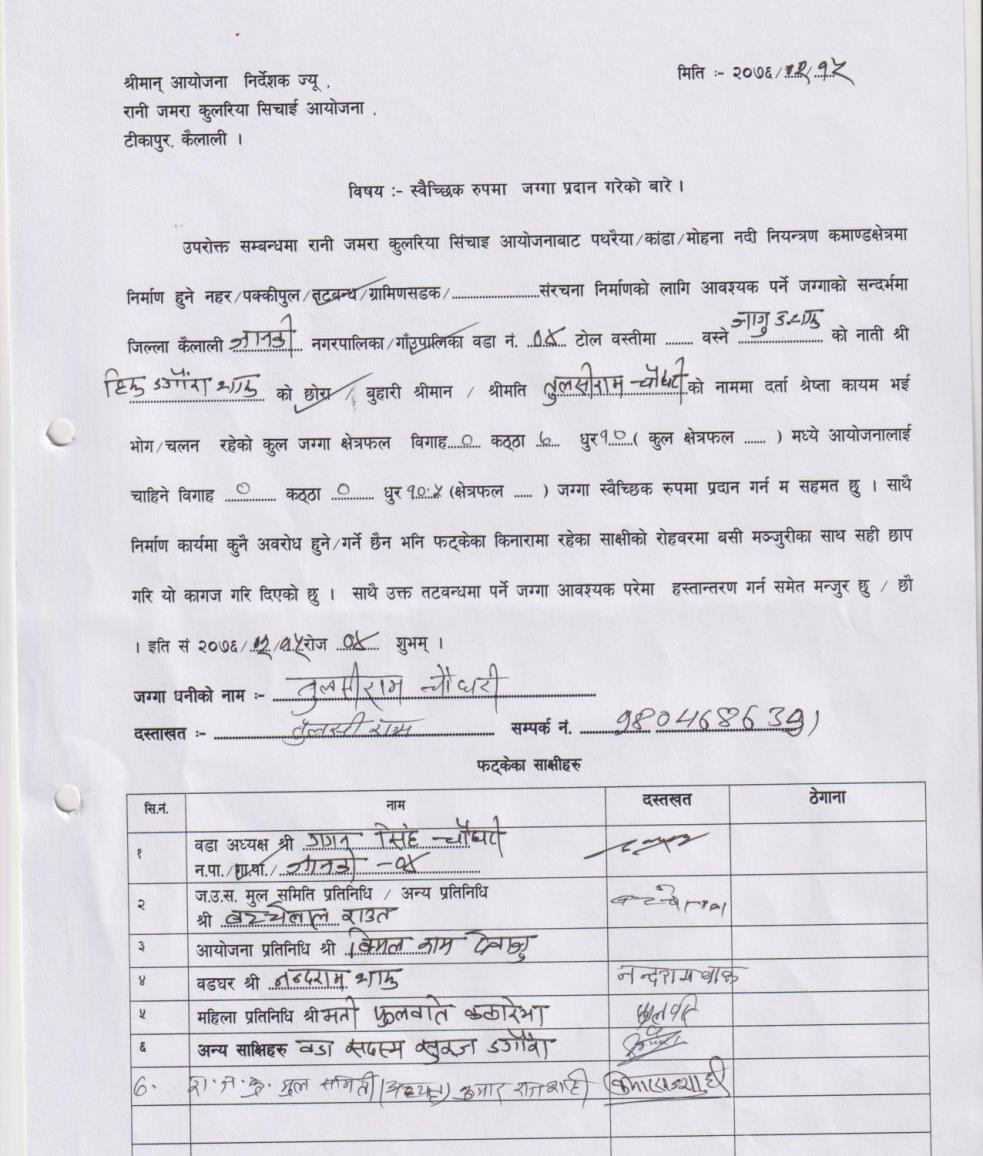 मिति :- २०७६/१२/१५
श्रीमान् आयोजना निर्देशक ज्यू ,
रानी जमरा कुलरिया सिचाई आयोजना ,
टीकापुर, कैलाली ।
विषय :- स्वैच्छिक रुपमा जग्गा प्रदान गरेको बारे ।
उपरोक्त सम्बन्धमा रानी जमरा कुलरिया सिंचाइ आयोजनाबाट पथरैया/कांडा/मोहना नदी नियन्त्रण कमाण्डक्षेत्रमा
निर्माण हुने नहर/पक्कीपुल/तटबन्ध/ग्रामिणसडक/........................संरचना निर्माणको लागि आवश्यक पर्ने जग्गाको सन्दर्भमा
जिल्ला कैलाली जानकी नगरपालिका/गाँउपालिका वडा नं. ०४ टोल वस्तीमा ........ वस्ने जागु को नाती श्री
डगौरा थारु को छोरा / बुहारी श्रीमान / श्रीमति तुलसीराम चौधरी को नाममा दर्ता श्रेष्ता कायम भई
भोग/चलन रहेको कुल जग्गा क्षेत्रफल विगाह ० कठ्ठा ६ धुर १० ( कुल क्षेत्रफल ...... ) मध्ये आयोजनालाई
चाहिने विगाह ० कठ्ठा ० धुर १०.५ (क्षेत्रफल ..... ) जग्गा स्वैच्छिक रुपमा प्रदान गर्न म सहमत छु । साथै
निर्माण कार्यमा कुनै अवरोध हुने/गर्ने छैन भनि फट्केका किनारामा रहेका साक्षीको रोहवरमा बसी मञ्जुरीका साथ सही छाप
गरि यो कागज गरि दिएको छु । साथै उक्त तटवन्धमा पर्ने जग्गा आवश्यक परेमा हस्तान्तरण गर्न समेत मन्जुर छु / छौ
। इति सं २०७६/१२/१५ रोज ०४ शुभम् ।
जग्गा धनीको नाम :- तुलसीराम चौधरी
दस्ताखत :- तुलसी राम सम्पर्क नं. 980468639)
फट्केका साक्षीहरु
सि.नं. नाम दस्तखत ठेगाना
१ वडा अध्यक्ष श्री गगन सिंह चौधरी
न.पा./गा.पा./ जानकी -०४
२ ज.उ.स. मुल समिति प्रतिनिधि / अन्य प्रतिनिधि
श्री बच्चेलाल राउत
३ आयोजना प्रतिनिधि श्री विमल
४ वडघर श्री नन्दराम थारु नन्दराम थारू
५ महिला प्रतिनिधि श्रीमती फुलवति कठरिया
६ अन्य साक्षिहरु वडा सदस्य डगौरा
७. रा.ज.कु. मुल समिती (अध्यक्ष) कुमार राजशाही